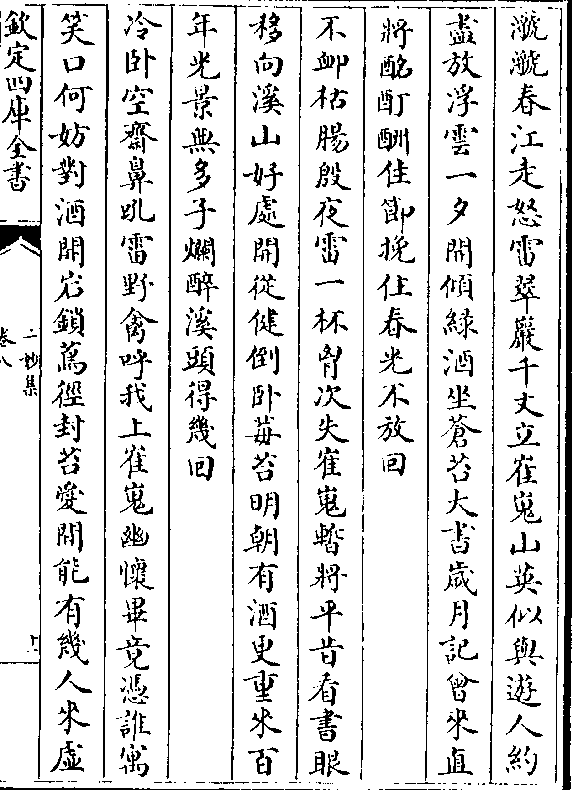 灎灎春江走怒雷翠巖千丈立崔嵬山英似與遊人約
盡放浮雲一夕開傾綠酒坐蒼苔大書嵗月記曾來直
將酩酊酬佳節挽住春光不放回
不郫枯腸殷夜雷一杯胷次失崔嵬暫將平昔看書眼
移向溪山好處開從健倒卧莓苔明朝有酒更重來百
年光景無多子爛醉溪頭得幾回
冷卧空齋鼻吼雷野禽呼我上崔嵬幽懐畢竟憑誰寓
笑口何妨對酒開岩鎖蔦徑封苔愛閒能有幾人來虛
欽定四庫全書
二妙集
卷八
十一